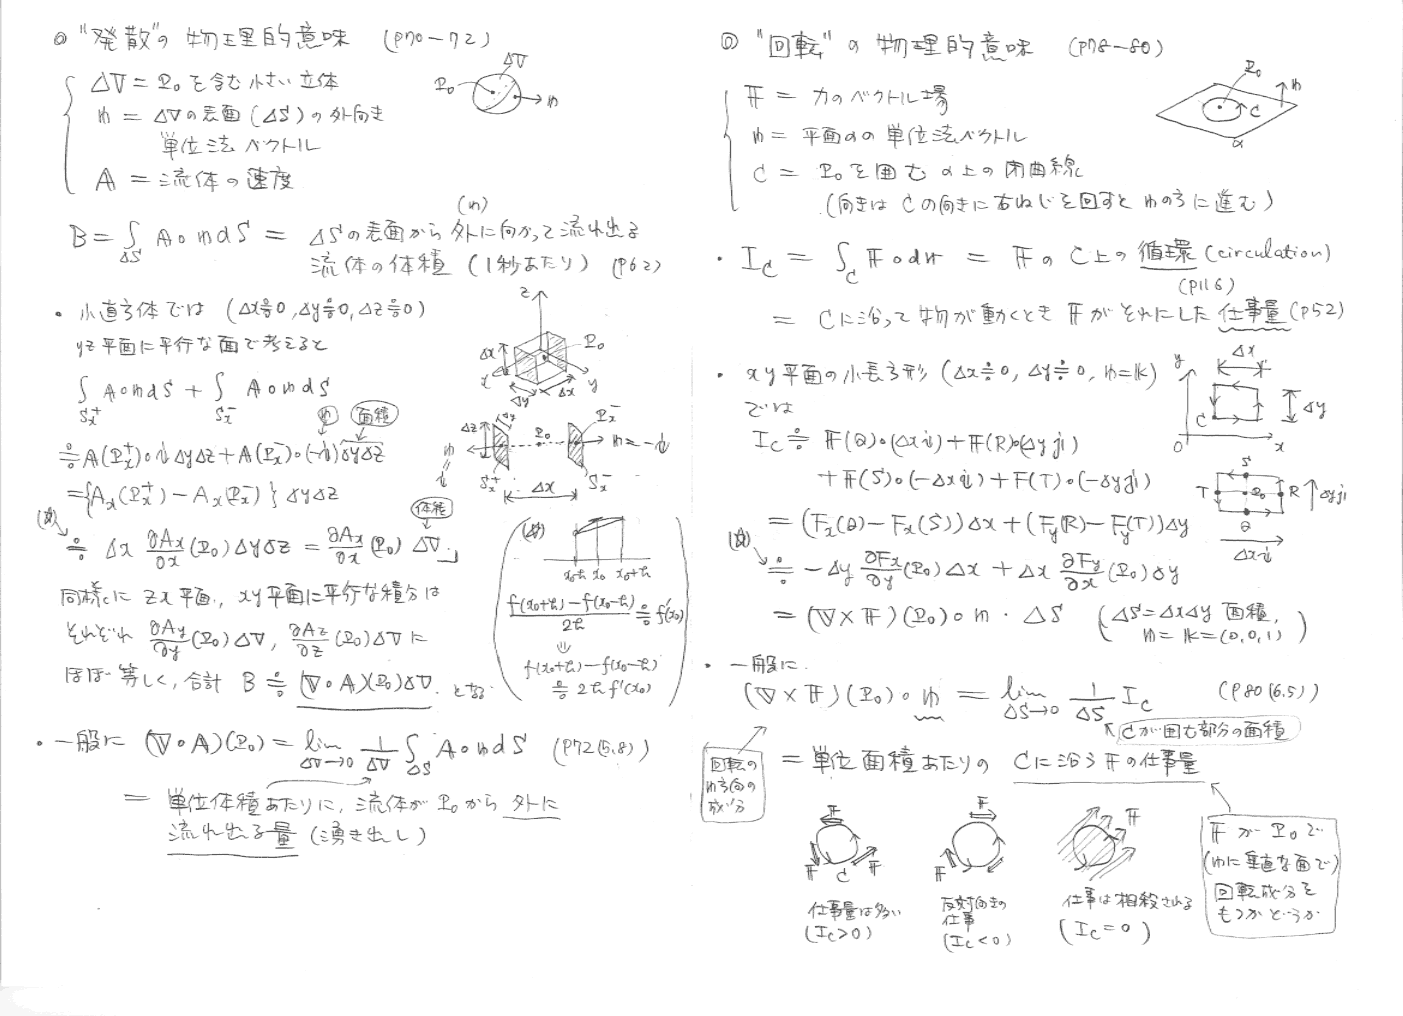 ◎ "発散"の物理的意味 (p70-72)
ΔV = P₀を含む小さい立体
n = ΔVの表面(ΔS)の外向き
単位法ベクトル
A = 流体の速度
ΔV
P₀
n
(n)
B = ∫_ΔS A∘n dS = ΔSの表面から外に向かって流れ出る
流体の体積 (1秒あたり) (p62)
・小直方体では (Δx≒0, Δy≒0, Δz≒0)
yz平面に平行な面で考えると
∫_{Sx⁺} A∘n dS + ∫_{Sx⁻} A∘n dS
n 面積
≒ A(Px⁺)∘i ΔyΔz + A(Px⁻)∘(-i) ΔyΔz
= {Ax(Px⁺) - Ax(Px⁻)} ΔyΔz
体積
(☆) ≒ Δx ∂Ax/∂x (P₀) ΔyΔz = ∂Ax/∂x (P₀) ΔV
同様に zx平面, xy平面に平行な積分は
それぞれ ∂Ay/∂y (P₀)ΔV, ∂Az/∂z (P₀)ΔV に
ほぼ等しく, 合計 B ≒ (∇∘A)(P₀)ΔV となる
z
P₀
Δx
x
y
Δy
Δx
Δz
P₀
Px⁻
n
n = -i
Sx⁺
Δx
Sx⁻
(☆)
x₀-h x₀ x₀+h
f(x₀+h) - f(x₀-h) / 2h ≒ f'(x₀)
⇓
f(x₀+h) - f(x₀-h)
≒ 2h f'(x₀)
・一般に (∇∘A)(P₀) = lim_{ΔV→0} 1/ΔV ∫_ΔS A∘n dS (p72(5.8))
= 単位体積あたりに, 流体が P₀ から 外に
流れ出る量 (湧き出し)
◎ "回転"の物理的意味 (p78-80)
F = 力のベクトル場
n = 平面αの単位法ベクトル
C = P₀を囲むα上の閉曲線
(向きは Cの向きに右ねじを回すと nの方に進む)
P₀
n
C
α
・I_C = ∫_C F∘dr = F の C上の循環 (circulation)
(p116)
= Cに沿って物が動くとき Fがそれにした仕事量 (p52)
・xy平面の小長方形 (Δx≒0, Δy≒0, n=k)
では
I_C ≒ F(Q)∘(Δx i) + F(R)∘(Δy j)
+ F(S)∘(-Δx i) + F(T)∘(-Δy j)
= (Fx(Q) - Fx(S))Δx + (Fy(R) - Fy(T))Δy
(☆) ≒ -Δy ∂Fx/∂y (P₀)Δx + Δx ∂Fy/∂x (P₀)Δy
= (∇×F)(P₀)∘n・ΔS (ΔS=ΔxΔy 面積,
n = k = (0,0,1))
y
Δx
C
Δy
0
x
S
T
P₀
R
Δy j
Q
Δx i
・一般に
(∇×F)(P₀)∘n = lim_{ΔS→0} 1/ΔS I_C (p80(6.5))
Cが囲む部分の面積
回転の
n方向の
成分
= 単位面積あたりの Cに沿うFの仕事量
F
F
C
F
仕事量は多い
(I_C>0)
F
F
反対向きの
仕事
(I_C<0)
F
仕事は相殺される
(I_C=0)
Fが P₀で
(nに垂直な面で)
回転成分を
もつかどうか